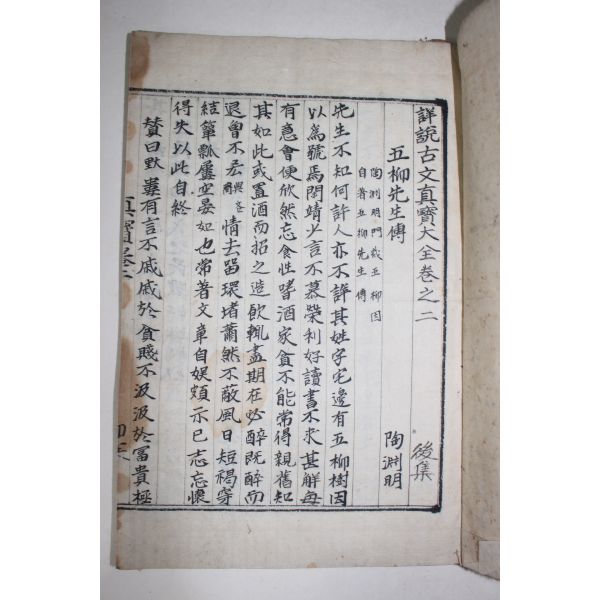 詳說古文真寶大全卷之二
後集
五柳先生傳
陶淵明
陶淵明門栽五柳因
自著五柳先生傳
先生不知何許人亦不詳其姓字宅邊有五柳樹因
以爲號焉閑靖少言不慕榮利好讀書不求甚解每
有意會便欣然忘食性嗜酒家貧不能常得親舊知
其如此或置酒而招之造飮輒盡期在必醉旣醉而
退曾不吝情去留環堵蕭然不蔽風日短褐穿
結簞瓢屢空晏如也常著文章自娛頗示己志忘懷
得失以此自終
贊曰黔婁有言不戚戚於貧賤不汲汲於富貴極
真寶卷二